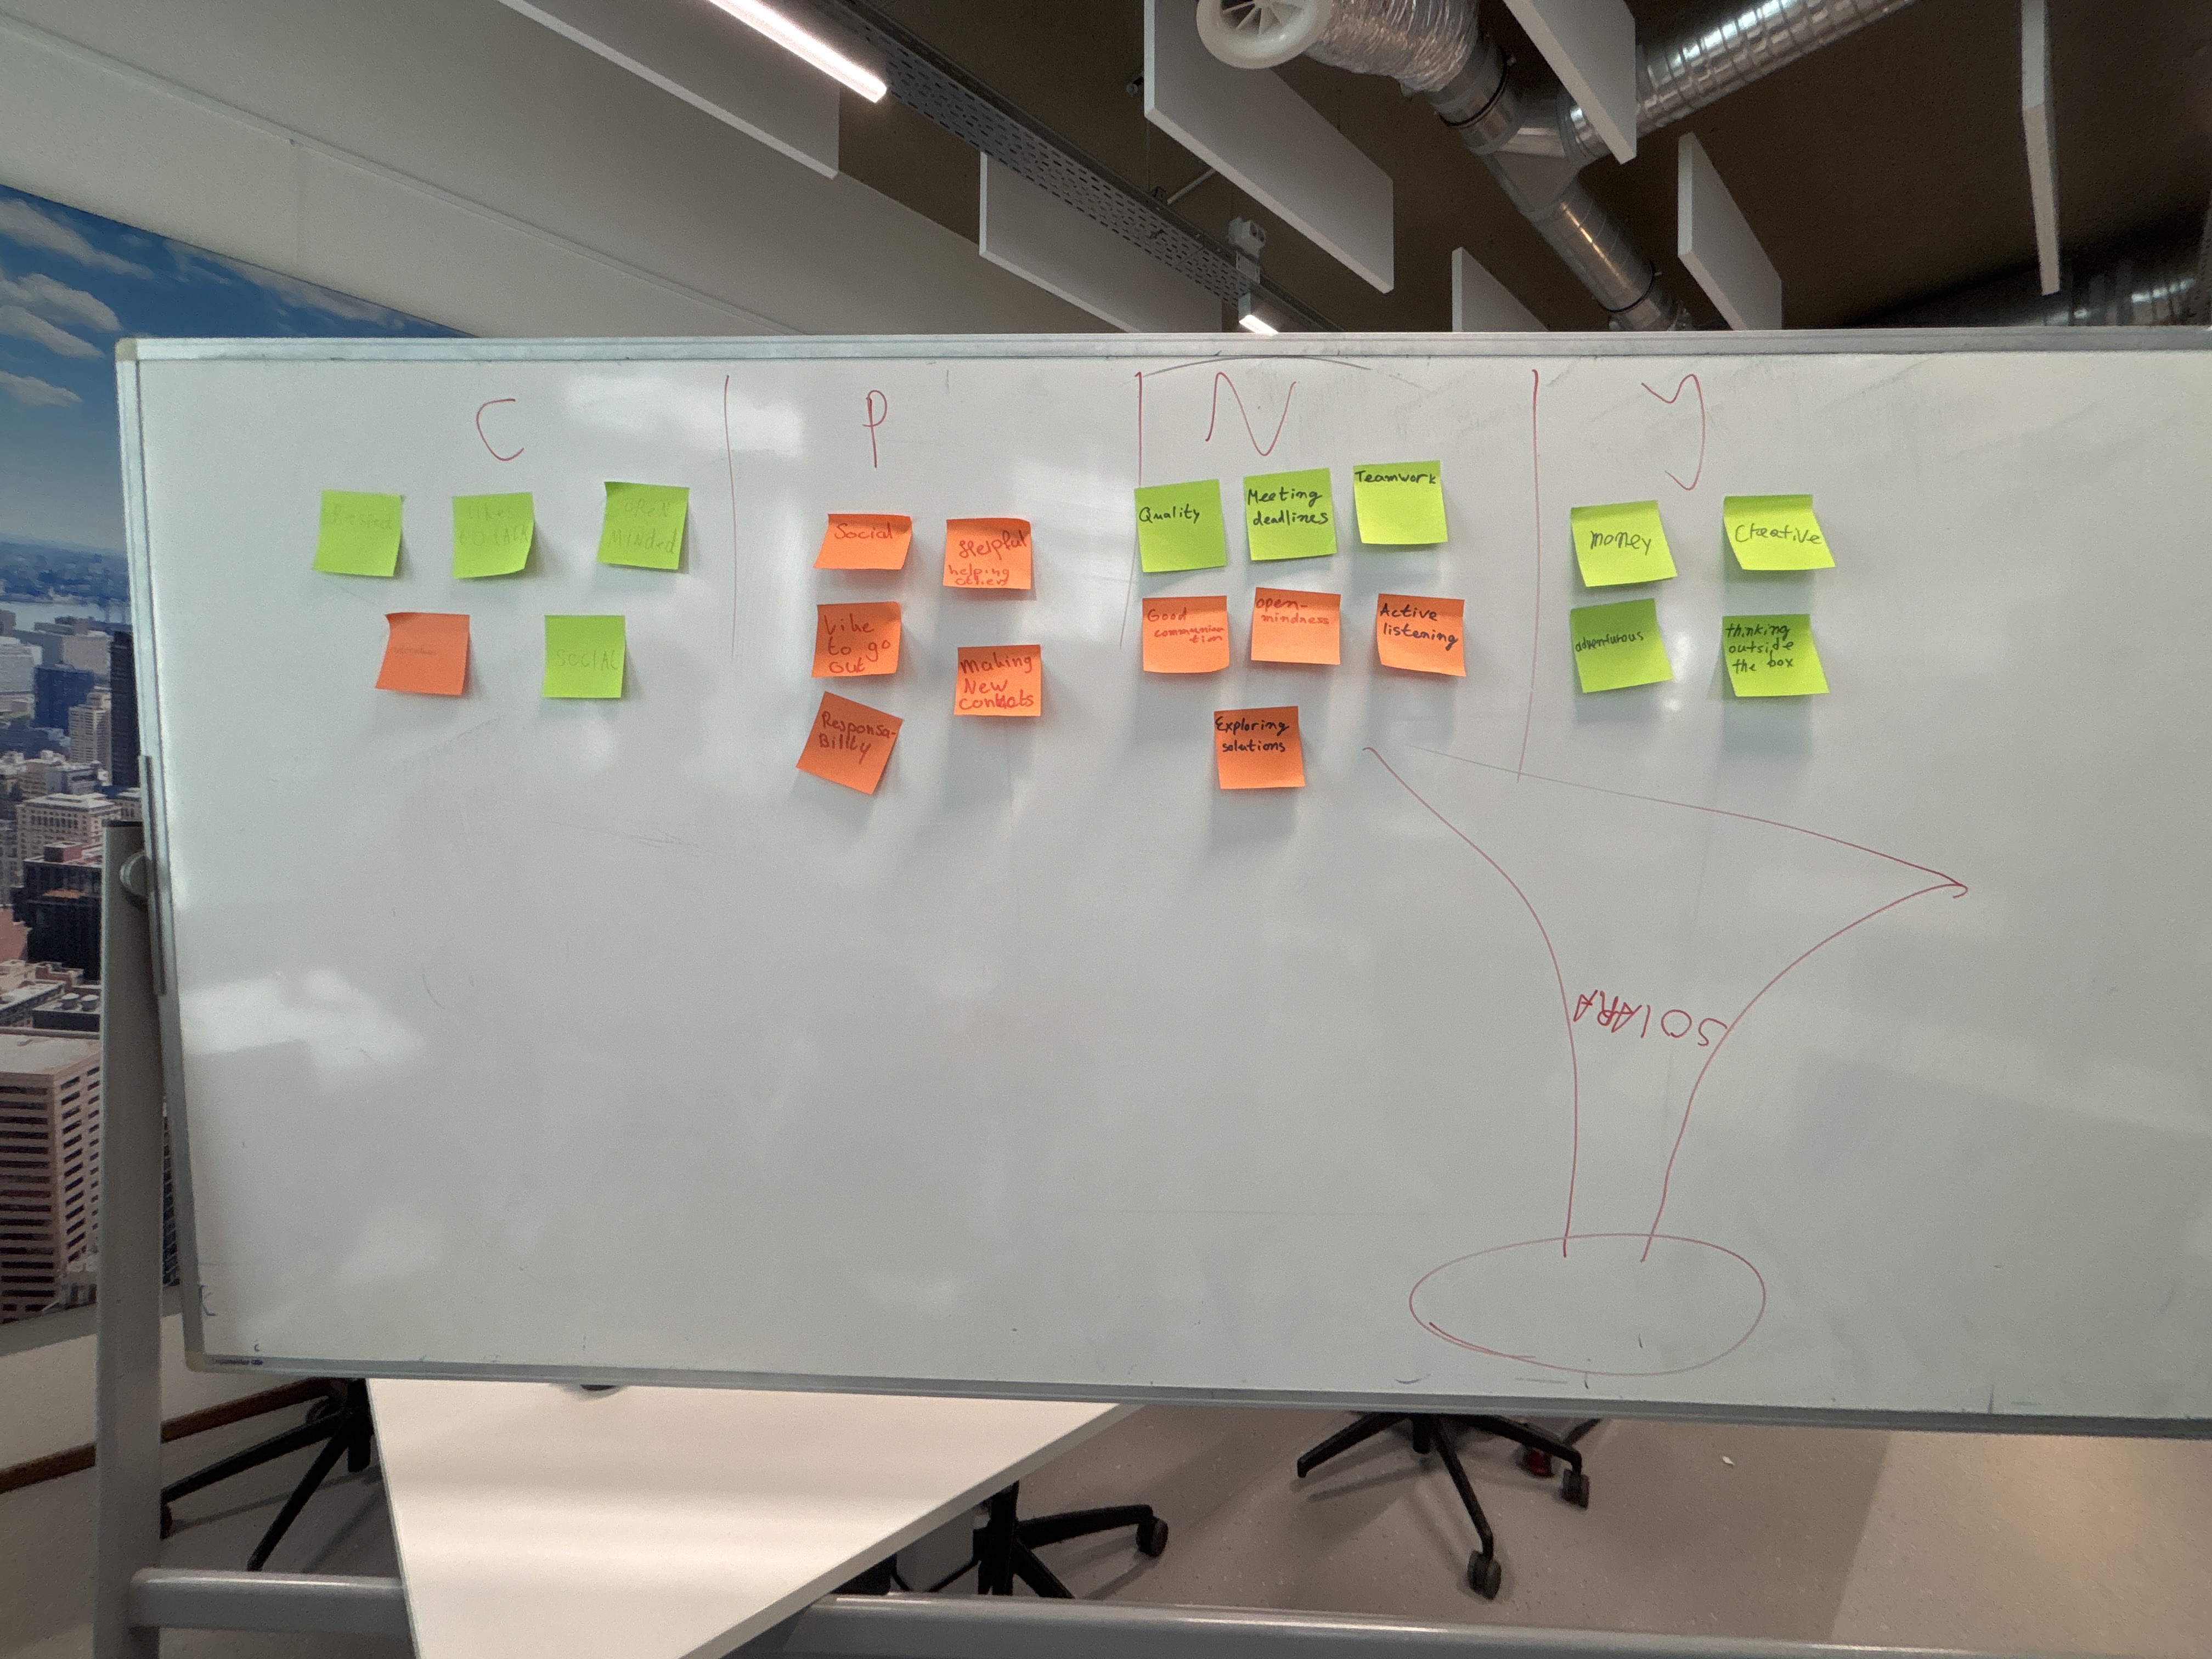 C
P
N
y
LIKES
TO TALK
OPEN
MINded
SOCIAL
Social
Helpful
helping
others
Like
to go
out
Making
New
contacts
Responsa-
Bility
Quality
Meeting
deadlines
Teamwork
Good
communica-
tion
open-
mindness
Active
listening
Exploring
solutions
money
Creative
adventurous
thinking
outside
the box